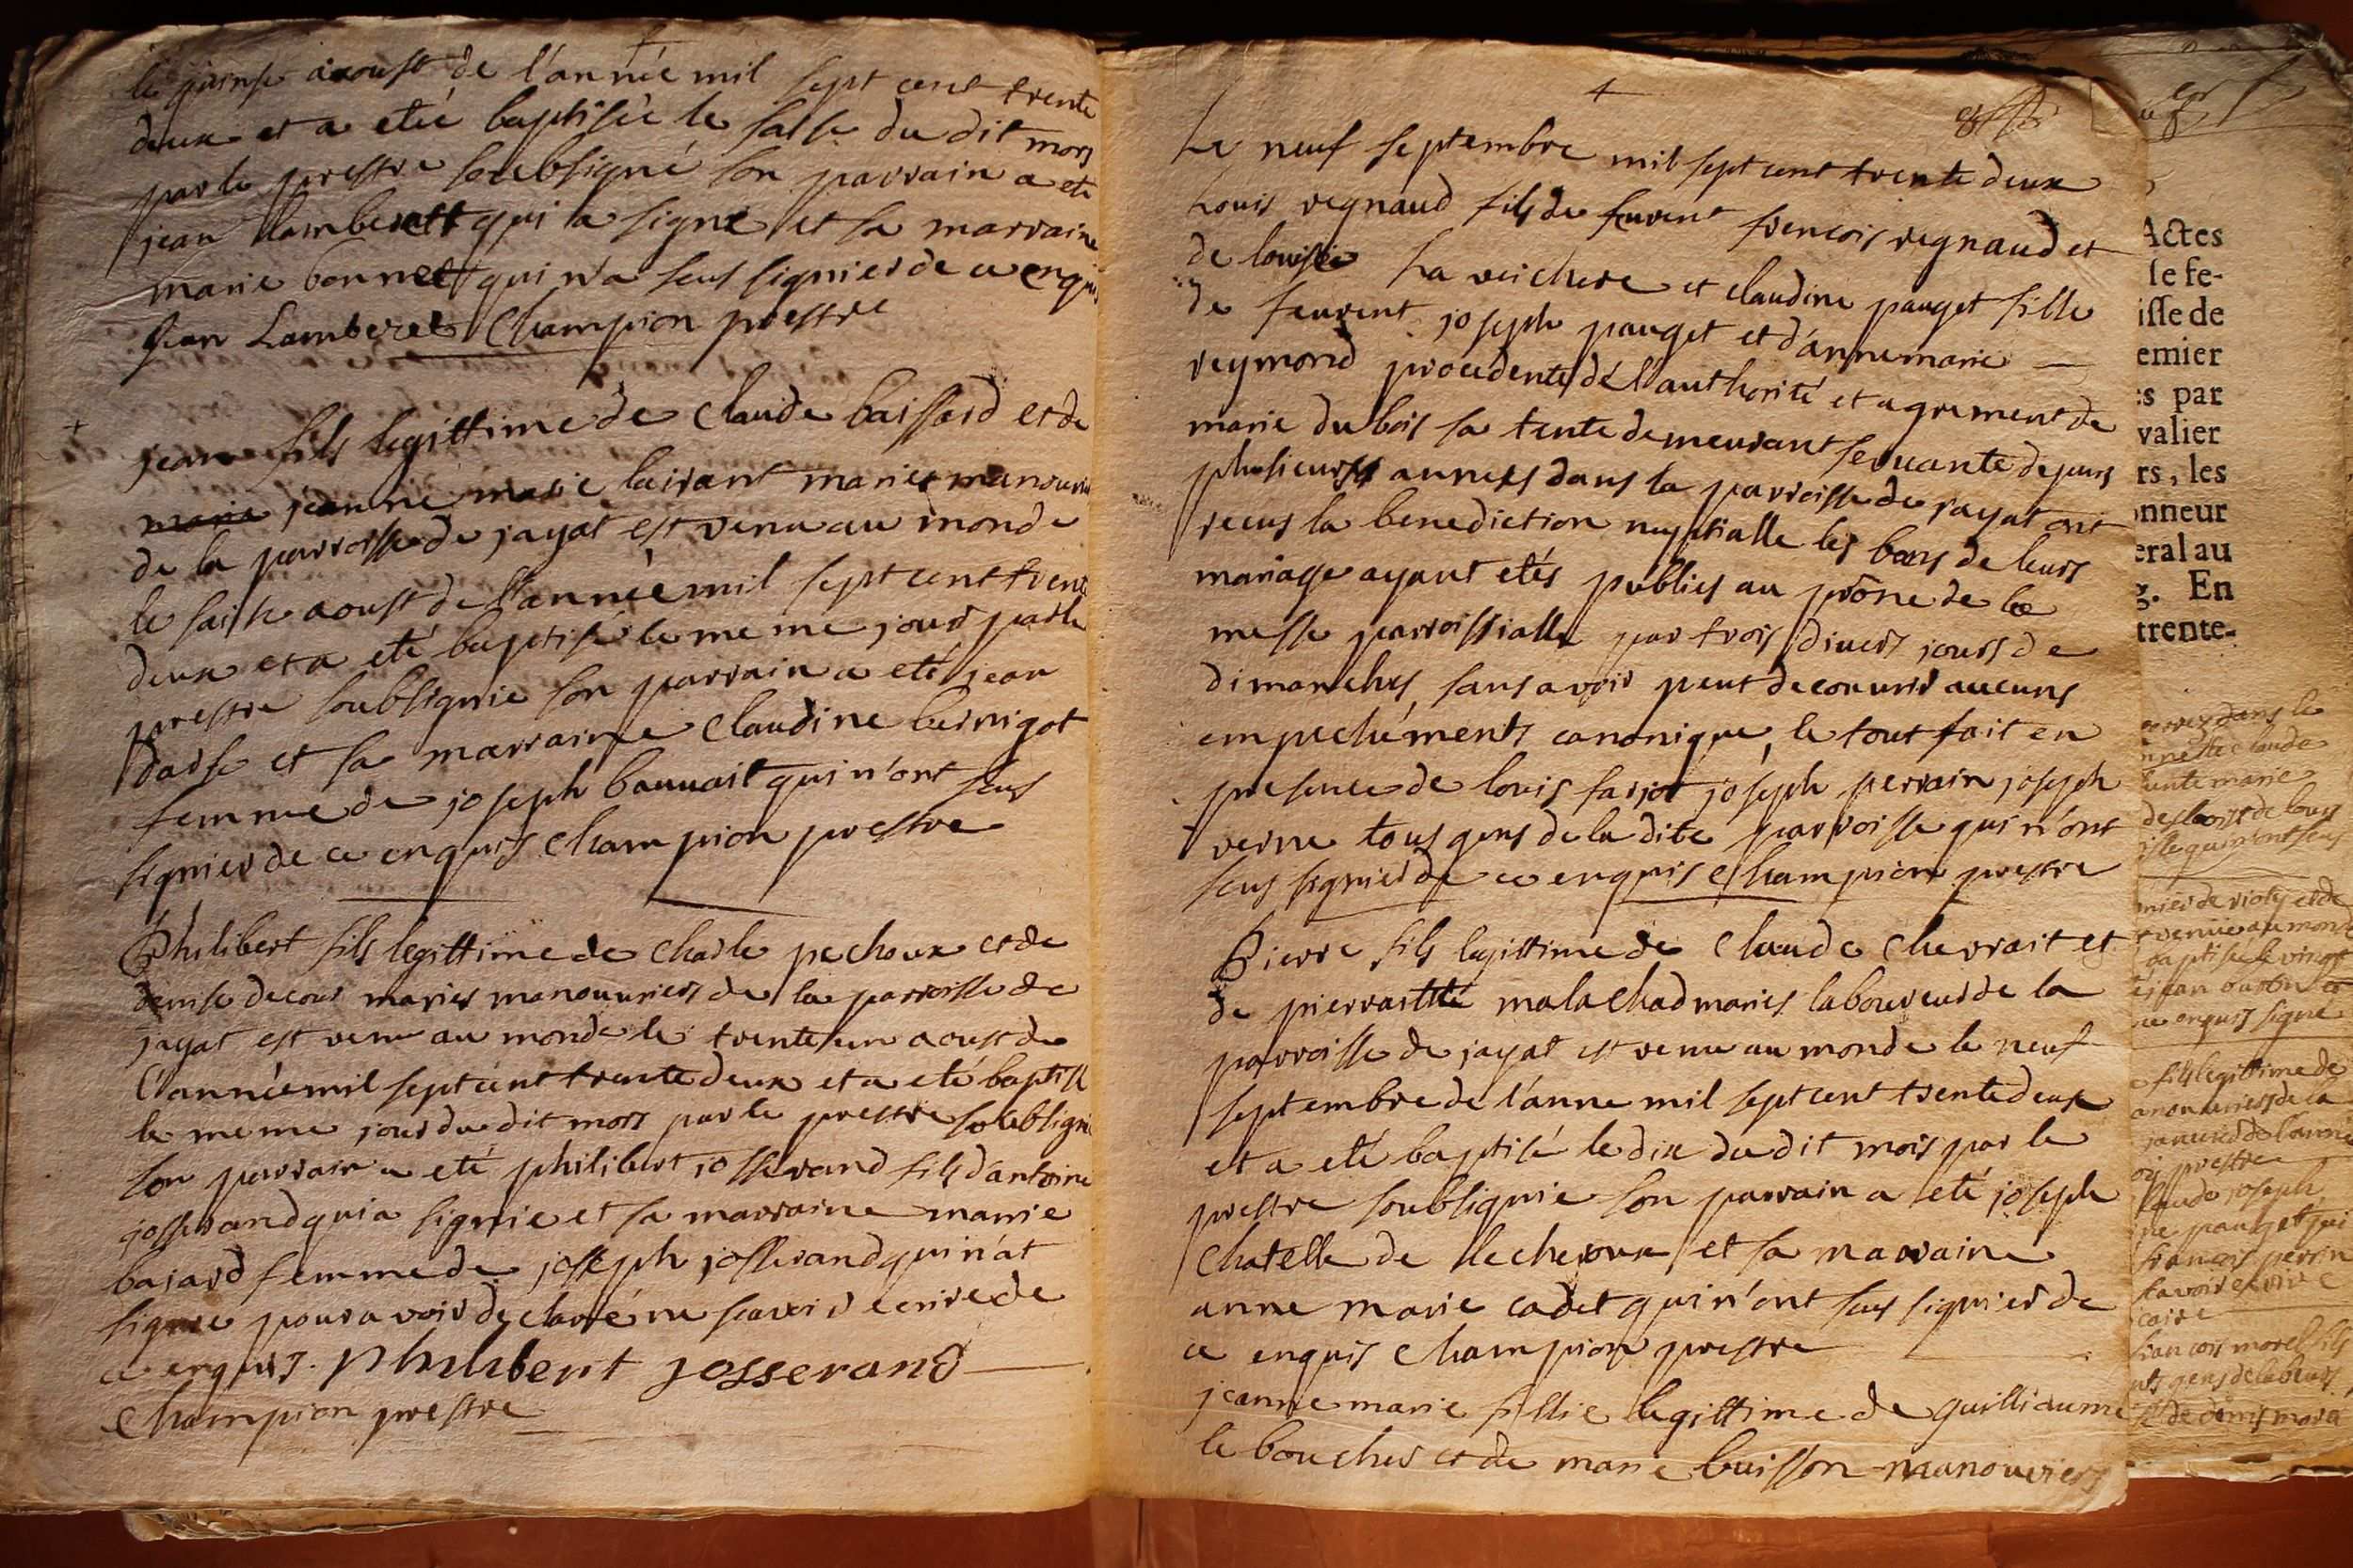 le quinse aoust de l'année mil sept cent trente
deux et a eteé baptisée le saise du dit mois
par le prestre soubsigné son parrain a eté
jean lamberett qui a signé et sa marraine
marie bonnet qui n'a seus signier de ce enquis
Jean Lamberet Champion prestre
jean fils legittime de Claude baissard et de
marie jeanne marie lairant mariés manouvri
de la parroisse de jayat est venu au monde
le saise aoust de l'année mil sept cent trente
deux et a eté baptisé le meme jour par le
prestre soubsignie son parrain a eté jean
darse et sa marraine Claudine bernigot
femme de joseph bauvait qui n'ont seus
signier de ce enquis Champion prestre
Philibert fils legittime de Charle pechoux et de
denise decour mariés manouvriers de la parroisse de
jayat est venu au monde le trente un aoust de
l'année mil sept cent trente deux et a eté baptisé
le meme jour du dit mois par le prestre soubsignie
son parrain a eté philibert josserand fils d'antoine
josserand qui a signie et sa marraine marie
bajard femme de joseph josserand qui n'at
signie pour avoir declaré ne scavoir ecrire de
ce enquis. Philibert josserand
Champion prestre
Le neuf septembre mil sept cent trente deux
Louis regnaud fils de feurent francois regnaud et
de louise La veichere et claudine pauget fille
de feurent joseph pauget et d'anne marie
reymond procedente de l'authorité et agrement de
marie du bois sa tente demeurant servante depuis
plusieurs années dans la parroisse de jayat ont
receus la benediction nuptialle les bans de leurs
mariage ayant etés publies au prône de la
messe parroissialle par trois divers jours de
dimanches, sans avoir peut decouvrir aucuns
empechéments canonique, le tout fait en
presence de louis farjot joseph perrain joseph
verne tous gens de la dite parroisse qui n'ont
seus signier de ce enquis Champion prestre
Pierre fils legittime de Claude Chevrait et
de pierrastte malachad mariés laboureur de la
parroisse de jayat est venu au monde le neuf
septembre de l'anne mil sept cent trente deux
et a eté baptisé le dix du dit mois par le
prestre soubsignie son parrain a eté joseph
Chatelle de lecheroux et sa marraine
anne marie cadet qui n'ont seus signier de
ce enquis Champion prestre
jeanne marie fillie legittime de guilliaume
le boucher et de marie buisson manouvriers
Actes
le fe-
isse de
emier
s par
valier
rs, les
nneur
eral au
g. En
trente-